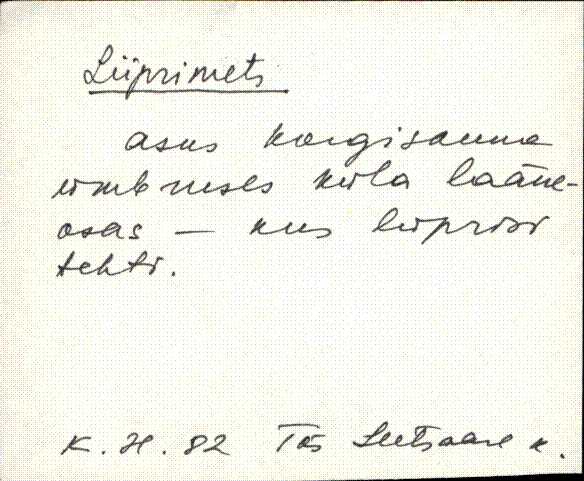 Liiprimets
asus kargisauna
ümbruses küla lääne-
osas – kus liiprisi
tehti.
K. H. 82 Tõs Seetsaare k.